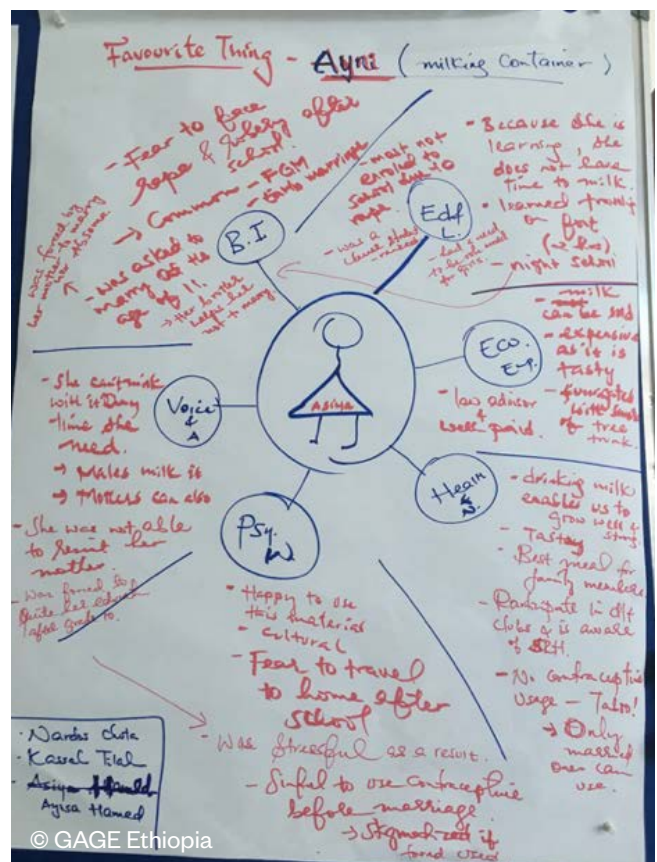 Favourite Thing - Ayni (milking Container)
- Fear to face
rape & robery after
school!
→ Common - FGM
- early marriage
- was asked to
marry at the
age of 11.
→ Her brother
helped her
not to marry
was forced by
her mother to marry
her
B.I
- most not
enroled to
school due to
rape.
- was a
clever student
- ranked
Edu
L.
- had a need
to be role model
for girls.
- Because she is
learning, she
does not have
time to milk.
- learned
on foot
- night school
- milk
can be sold
- expensive
as it is
tasty
- fumigated
with smoke
of tree
trunk.
Eco.
Emp.
- law advisor
&
well paid.
Asiya
Voice
& A
- She can't milk
with it any
time she
need.
→ Males milk it
→ Mothers can also
- She was not able
to resist her
mother
- was forced to
quite her education
after grade 10.
Health
& N.
- drinking milk
enables us to
grow well &
strong
- Tasty
- Best meal for
family members
- Participate in d/t
clubs & is aware
of SRH.
- No contraceptive
usage - Taboo!
→ Only
married
ones can
use.
Psy.
W
- Happy to use
this material
- cultural
- Fear to travel
to home after
school
- was stressful as a result.
- Sinful to use contraceptive
before marriage.
→ stigmatized if
found used
- Nardos
- Kassah
- Asiya
Ayisa Hamed
© GAGE Ethiopia